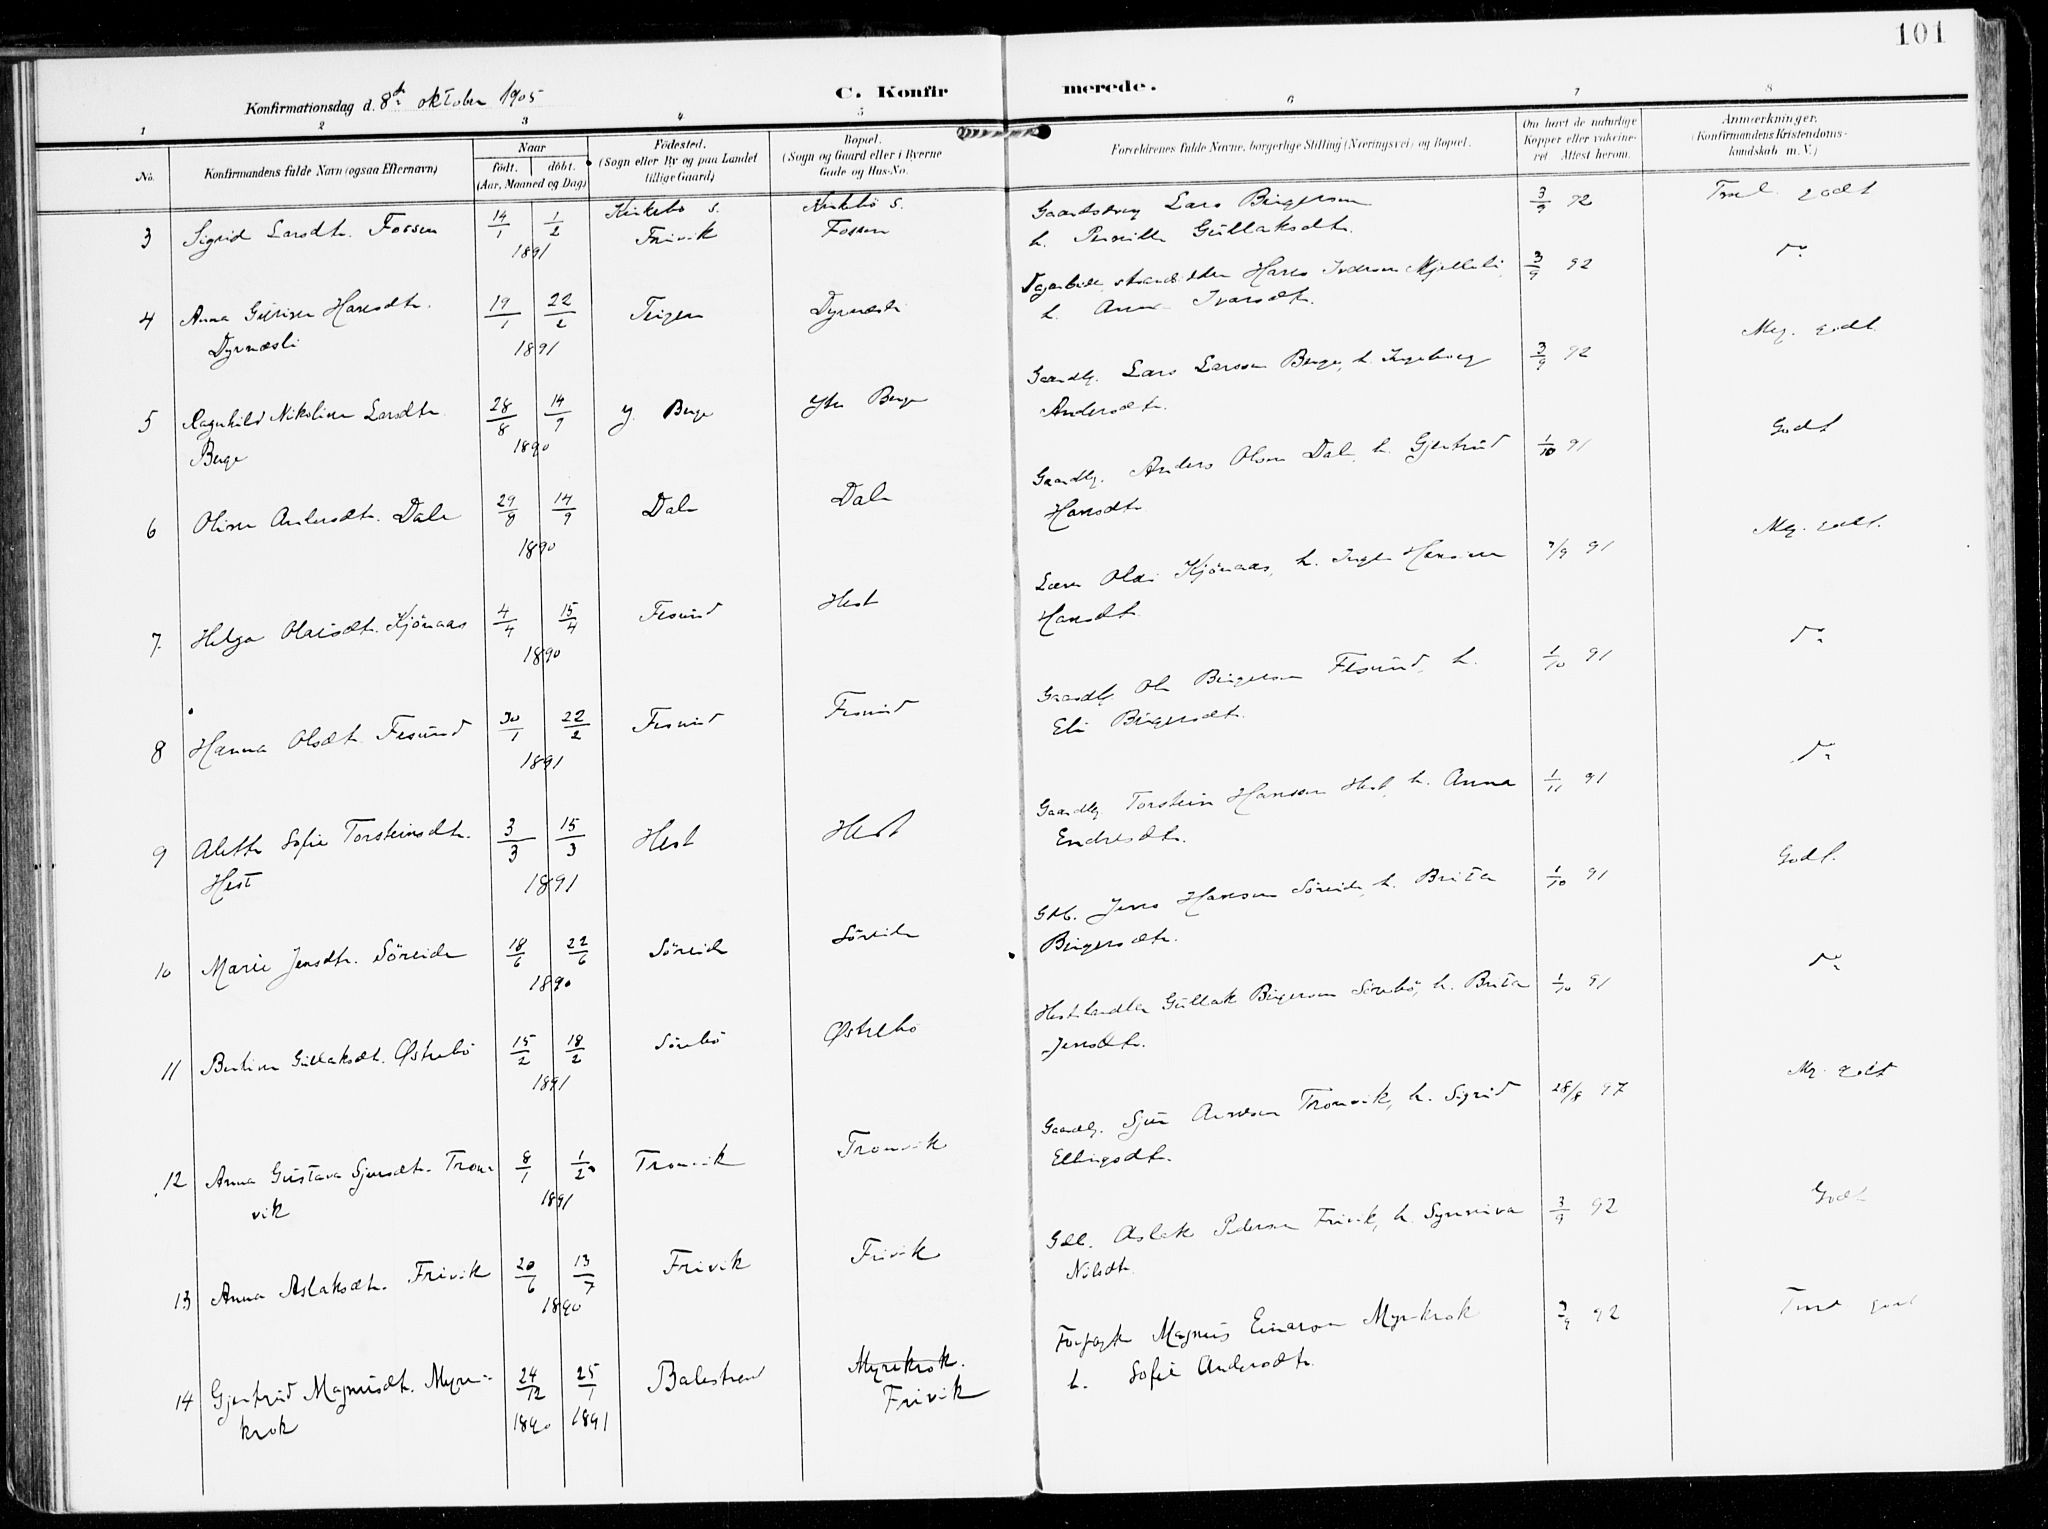 101
Konfirmationsdag d. 8de oktober 1905
C. Konfirmerede.
1 2 3 4 5 6 7 8
No.
Konfirmandens fulde Navn (ogsaa Efternavn)
Naar
født. døbt.
(Aar, Maaned og Dag)
Fødested.
(Sogn eller By og paa Landet
tillige Gaard)
Bopæl.
(Sogn og Gaard eller i Byerne
Gade og Hus-No.
Forældrenes fulde Navne, borgerlige Stilling (Næringsvei) og Bopæl.
Om havt de naturlige
Kopper eller vakcine-
ret. Attest herom.
Anmærkninger.
(Konfirmandens Kristendoms-
kundskab m. V.)
3 Sigrid Larsdtr. Fossen 14/1 1/2 1891 Kirkebø s. Frivik Kirkebø s. Fossen
Lars Birgerson 3/9 92 godt
h. Pernille Gullaksdtr.
4 Anna Hansdtr. 19/1 22/2 1891 Teigen Dyrnæsli
Dyrnæsli
Hans Mjellli 3/9 92 do
h. Anna Ivarsdtr.
5 Ragnhild Nikoline Larsdtr. 28/8 14/9 1890 y. Berge Ytre Berge
Berge
Gaardbr. Lars Larsson Berge, h. Ingeborg 3/9 92 Meg. godt
Andersdtr.
6 Oline Andersdtr. Dale 29/8 14/9 1890 Dale Dale
Gaardbr. Anders Olsen Dale, h. Gjertrud 1/10 91 Godt
Hansdtr.
7. Helga Olaisdtr. Kjönaas 4/4 15/4 1890 Fesund Hest
Olai Kjönaas, h. Hansine 91 Meg. godt.
Hansdtr.
8 Hanna Olsdtr. Fesund 30/1 22/2 1891 Fesund Fesund
Gaardbr. Ole Birgerson Fesund, h. 1/10 91 do
Eli Birgersdtr.
9 Alette Sofie Torsteinsdtr. 3/3 15/3 1891 Hest Hest
Hest
Gaardbr. Torstein Hanson Hest, h. Anna 1/11 91 do
Endresdtr.
10 Marie Jensdtr. Söreide 18/6 22/6 1890 Söreide Söreide
Gbr. Jens Hanson Söreide, h. Brita 1/10 91 Godt.
Birgersdtr.
11 Bertine Gullaksdt. Østrebö 15/2 18/2 1891 Sörebö Østrebö
Hestehandler Gullak Birgerson Sörebö, h. Brita 1/10 91 do
Jensdtr.
12 Anna Gustava Sjursdtr. Tron- 8/1 1/2 1891 Tronvik Tronvik
vik
Gaardbr. Sjur Tronvik, h. Sigrid 28/8 97 Mg. godt
Ellingsdtr.
13 Anna Aslaksdtr. Frivik 20/6 13/7 1890 Frivik Frivik
Aslak Pederson Frivik, h. Synneva 3/9 92 Godt
Nilsdtr.
14 Gjertrud Magnusdt. Myre- 24/12 1890 25/1 1891 Balestrand Myrekrok.
krok Frivik
Magnus Einarson Myrekrok 3/9 92 godt
h. Sofie Andersdtr.